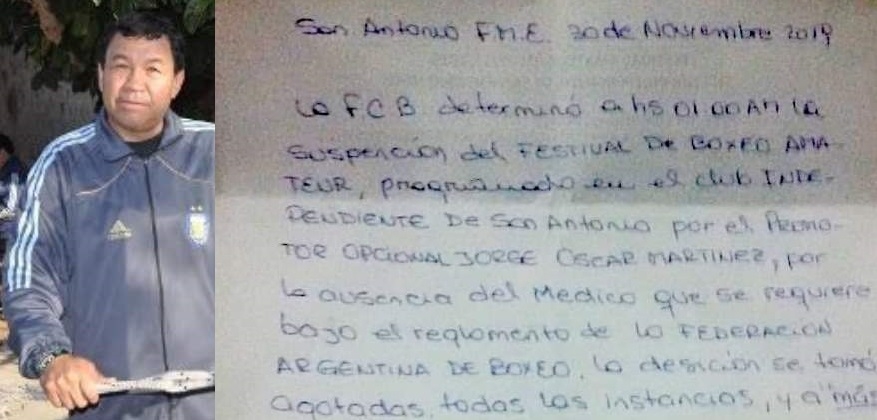 San Antonio F.M.E. 30 de Noviembre 2019
La FCB determinó a hs 01.00 AM la
suspención del FESTIVAL DE BOXEO AMA-
TEUR, programado en el club INDE-
PENDIENTE DE San Antonio por el PROMO-
TOR OPCIONAL JORGE OSCAR MARTINEZ, por
la ausencia del Medico que se requiere
bajo el reglomento de la FEDERACION
ARGENTINA DE BOXEO, la desición se tomó
agotadas todas las instancias, y a "más